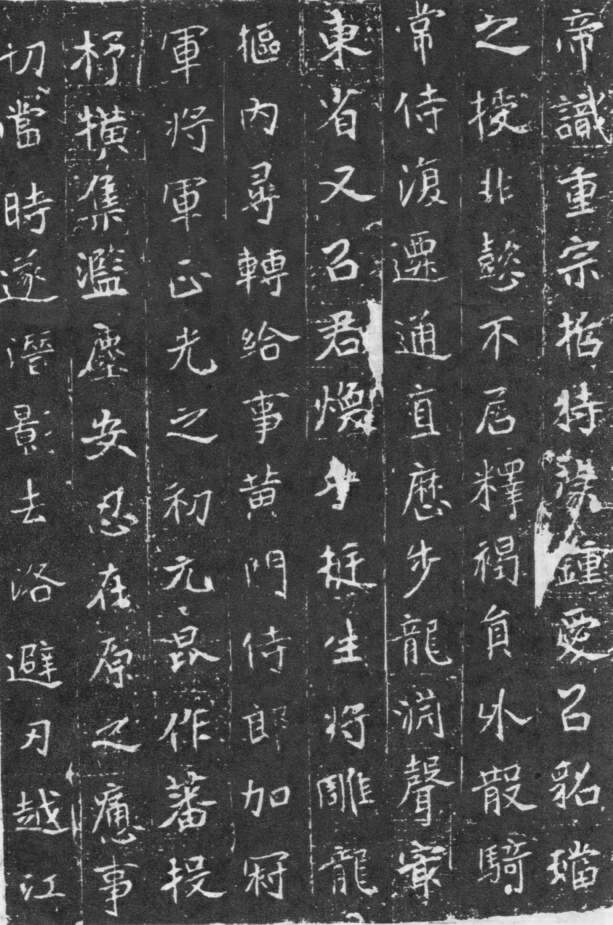 帝識重宗哲特蒙鍾愛以貂璫
之授非懿不居釋褐員外散騎
常侍復遷通直歷步龍淵聲實
東省又以君煥乎挺生將雕龍
樞內尋轉給事黃門侍郎加冠
軍將軍正光之初元昆作蕃投
杼橫集濫塵安忍在原之事
切當時遂潛影去洛避刃越江